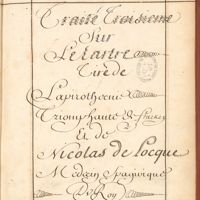 Traité Troisieme
Sur
Le Tartre
Tiré de
La pirothecnie
Triomphante de
Et de
Nicolas de Locque
Medecin Spagirique
Du Roy